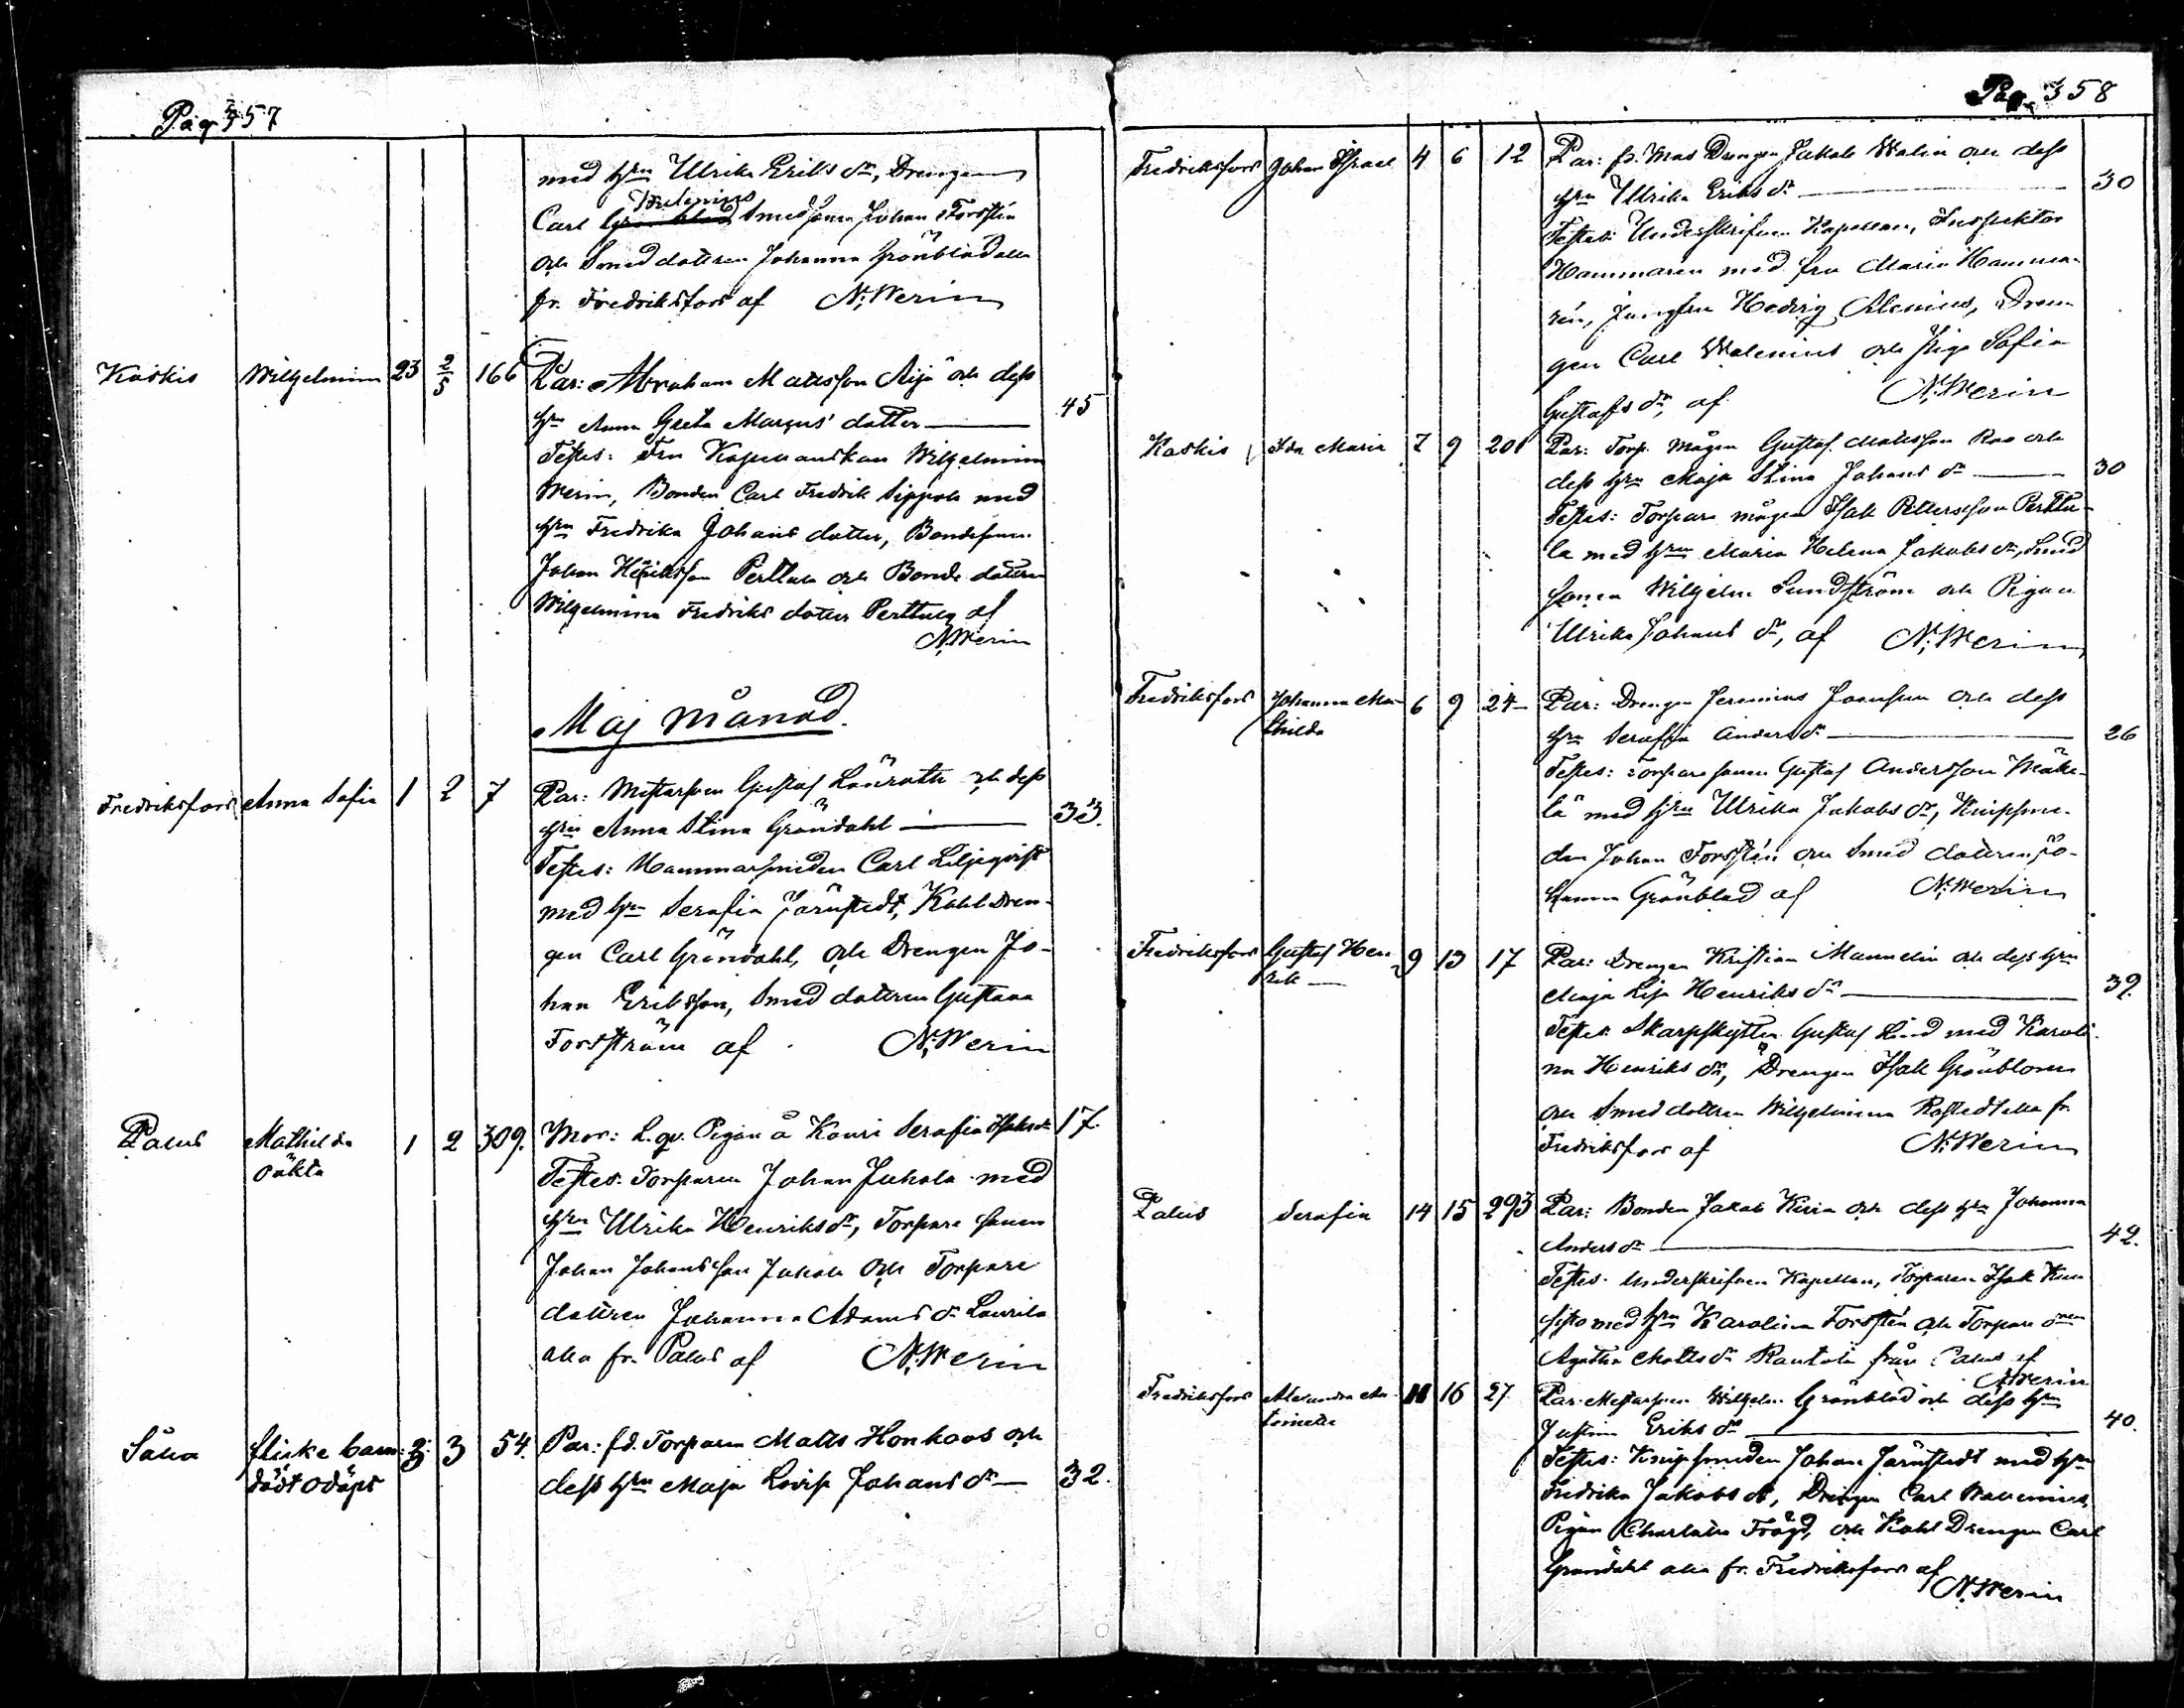 Pag 357
med hru Ulrika Eriks dr, Drengen
Carl Smedsonen Johan Forstén
och Smeddottren Johanna Grönblad alla
fr. Fredriksfors af N. Werin
Koskis Wilhelmina 23 2/5 166 Par: Abraham Mattsson Äijä och dess
hru Anna Greta Marcus' dotter — 45
Testes: Fru Kapellanskan Wilhelmina
Werin, Bonden Carl Fredrik Sippola med
hru Fredrika Johans dotter, Bondesonen
Johan Henriksson Perttula och Bonde dottren
Wilhelmina Fredriks dotter Perttula af
N. Werin
Maj månad.
Fredriksfors Anna Sofia 1 2 7 Par: Mästersven Gustaf Lönroth och dess
hru Anna Stina Gröndahl — 33.
Testes: Hammarsmeden Carl Liljeqvist
med hru Serafia Järnstedt, Kohldren-
gen Carl Gröndahl, och Drengen Jo-
han Eriksson, Smed dottren Gustava
Forsström af N. Werin
Palus Mathilda 1 2 309. Mor: L. qv. Pigan å Kouri Serafia Isaks dr 17.
oäkta
Testes: Torparen Johan Juhola med
hru Ulrika Henriks dr, Torpare sonen
Johan Johansson Juhola och Torpare
dottren Johanna Adams dr Laurila
alla fr. Palus af N. Werin
Flicke barn 3 3 54. Par: fd. Torparen Matts Honkoos och
dödt odöpt
dess hru Maja Lovisa Johans dr — 32.
Pag. 358
Fredriksfors Johan Israel 4 6 12 Par: Drengen Jakob Walin och dess
hru Ulrika Eriks dr — 30
Testes: Underskrifven Kapellan, Inspektor
Hammaren med fru Maria Hamma-
rén, Jungfru Hedvig Alenius, Dren-
gen Carl Walenius och Piga Sofia
Gustafs dr, af N. Werin
Koskis Ida Maria 7 9 201 Par: Torp. mågen Gustaf Mattsson och
dess hru Maja Stina Johans dr — 30
Testes: Torpare mågen Isak Pettersson Perttu-
la med hru Maria Helena Jakobs dr, Smed
sonen Wilhelm Sundström och Pigan
Ulrika Johans dr, af N. Werin
Fredriksfors Johanna Ma- 6 9 24 Par: Drengen Jeremias Joensson och dess
thilda
hru Serafia Anders dr — 26
Testes: Torpare sonen Gustaf Andersson Mäke-
lä med hru Ulrika Jakobs dr, Knipsme-
den Johan Forstén och Smed dottren Jo-
hanna Grönblad af N. Werin
Fredriksfors Gustaf Hen- 9 13 17 Par: Drengen Kristian Mannelin och dess hru
rik —
Maja Lisa Henriks dr — 39.
Testes: Skarpskytten Gustaf Lind med Karoli-
na Henriks dr, Drengen Isak Grönblom
och Smed dottren Wilhelmina alla fr.
Fredriksfors af N. Werin
Palus Serafia 14 15 293 Par: Bonden Jakob och dess hru Johanna
Anders dr — 42.
Testes: Underskrifven Kapellan, Torparen Isak
med hru Karolina Forstén och Torpare
Agatha Matts dr Rantala från Palus af
N. Werin
Fredriksfors Alexandra An- 11 16 27. Par: Mästersven Wilhelm Grönblad och dess hru
toinette
Justina Eriks dr — 40.
Testes: Knipsmeden Johan Järnstedt med hru
Fredrika Jakobs dr, Drengen Carl Walenius,
Pigan Charlotta Frögd, och Kohl Drengen Carl
Gröndahl alla fr. Fredriksfors af
N. Werin